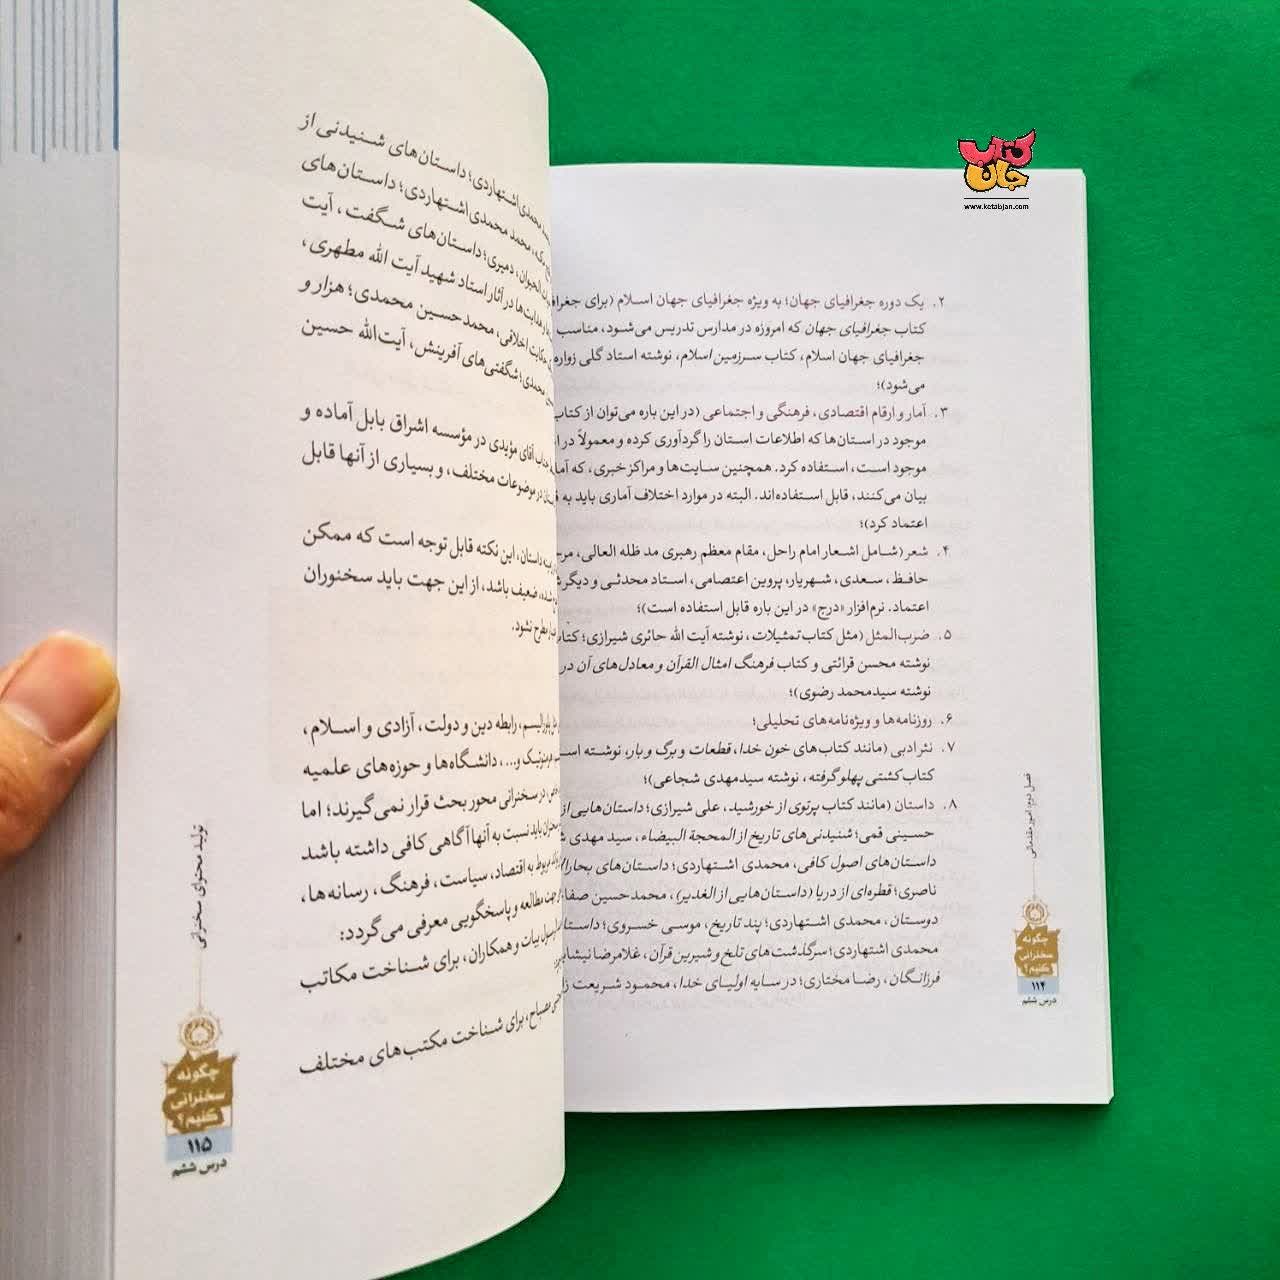 کتاب جان
www.ketabjan.com
۲. یک دوره جغرافیای جهان؛ به ویژه جغرافیای جهان اسلام (برای
کتاب جغرافیای جهان که امروزه در مدارس تدریس می‌شود، مناسب
جغرافیای جهان اسلام، کتاب سرزمین اسلام، نوشته استاد گلی زواره
می‌شود)؛
۳. آمار و ارقام اقتصادی، فرهنگی و اجتماعی (در این باره می‌توان از کتاب
موجود در استان‌ها که اطلاعات استان را گردآوری کرده و معمولاً در
موجود است، استفاده کرد. همچنین سایت‌ها و مراکز خبری، که
بیان می‌کنند، قابل استفاده‌اند. البته در موارد اختلاف آماری باید به
اعتماد کرد)؛
۴. شعر (شامل اشعار امام راحل، مقام معظم رهبری مد ظله العالی،
حافظ، سعدی، شهریار، پروین اعتصامی، استاد محدثی و دیگر
اعتماد. نرم‌افزار «درج» در این باره قابل استفاده است)؛
۵. ضرب‌المثل (مثل کتاب تمثیلات، نوشته آیت الله حائری شیرازی؛
نوشته محسن قرائتی و کتاب فرهنگ امثال القرآن و معادل‌های آن در
نوشته سیدمحمد رضوی)؛
۶. روزنامه‌ها و ویژه‌نامه‌های تحلیلی؛
۷. نثر ادبی (مانند کتاب‌های خون خدا، قطعات و برگ و بار، نوشته
کتاب کشتی پهلو گرفته، نوشته سیدمهدی شجاعی)؛
۸. داستان (مانند کتاب پرتوی از خورشید، علی شیرازی؛ داستان‌هایی از
حسینی قمی؛ شنیدنی‌های تاریخ از المحجة البیضاء، سید مهدی
داستان‌های اصول کافی، محمدی اشتهاردی؛ داستان‌های
ناصری؛ قطره‌ای از دریا (داستان‌هایی از الغدیر)، محمدحسین
دوستان، محمدی اشتهاردی؛ پند تاریخ، موسی خسروی؛
محمدی اشتهاردی؛ سرگذشت‌های تلخ و شیرین قرآن، غلامرضا
فرزانگان، رضا مختاری؛ در سایه اولیای خدا، محمود شریعت
فصل دوم: امور مقدماتی
چگونه
سخنرانی
کنیم؟
۱۱۴
درس ششم
محمدی اشتهاردی؛ داستان‌های شنیدنی از
محمد محمدی اشتهاردی؛ داستان‌های
الحیوان، دمیری؛ داستان‌های شگفت، آیت
هدایت‌ها در آثار استاد شهید آیت الله مطهری،
حکایت اخلاقی، محمدحسین محمدی؛ هزار و
محمدی؛ شگفتی‌های آفرینش، آیت‌الله حسین
جناب آقای مؤیدی در مؤسسه اشراق بابل آماده و
در موضوعات مختلف، و بسیاری از آنها قابل
داستان، این نکته قابل توجه است که ممکن
شده، ضعیف باشد، از این جهت باید سخنوران
مطرح نشود.
پلورالیسم، رابطه دین و دولت، آزادی و اسلام،
هرمنوتیک و...، دانشگاه‌ها و حوزه‌های علمیه
در سخنرانی محور بحث قرار نمی‌گیرند؛ اما
باید نسبت به آنها آگاهی کافی داشته باشد
مربوط به اقتصاد، سیاست، فرهنگ، رسانه‌ها،
جهت مطالعه و پاسخگویی معرفی می‌گردد:
بیات و همکاران، برای شناخت مکاتب
مصباح، برای شناخت مکتب‌های مختلف
تولید محتوای سخنرانی
چگونه
سخنرانی
کنیم؟
۱۱۵
درس ششم